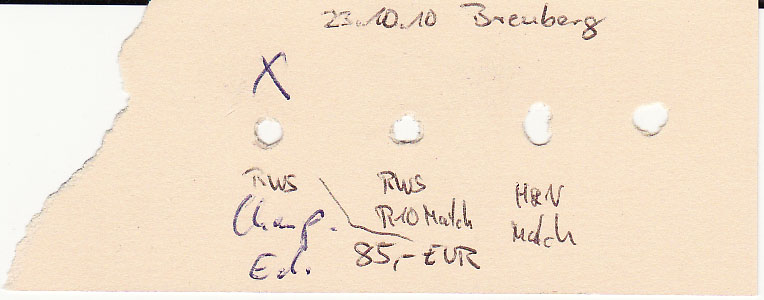 23.10.10 Breuberg
X
RWS
Champ.
Ed.
RWS
R10 Match
85,- EUR
H&N
Match